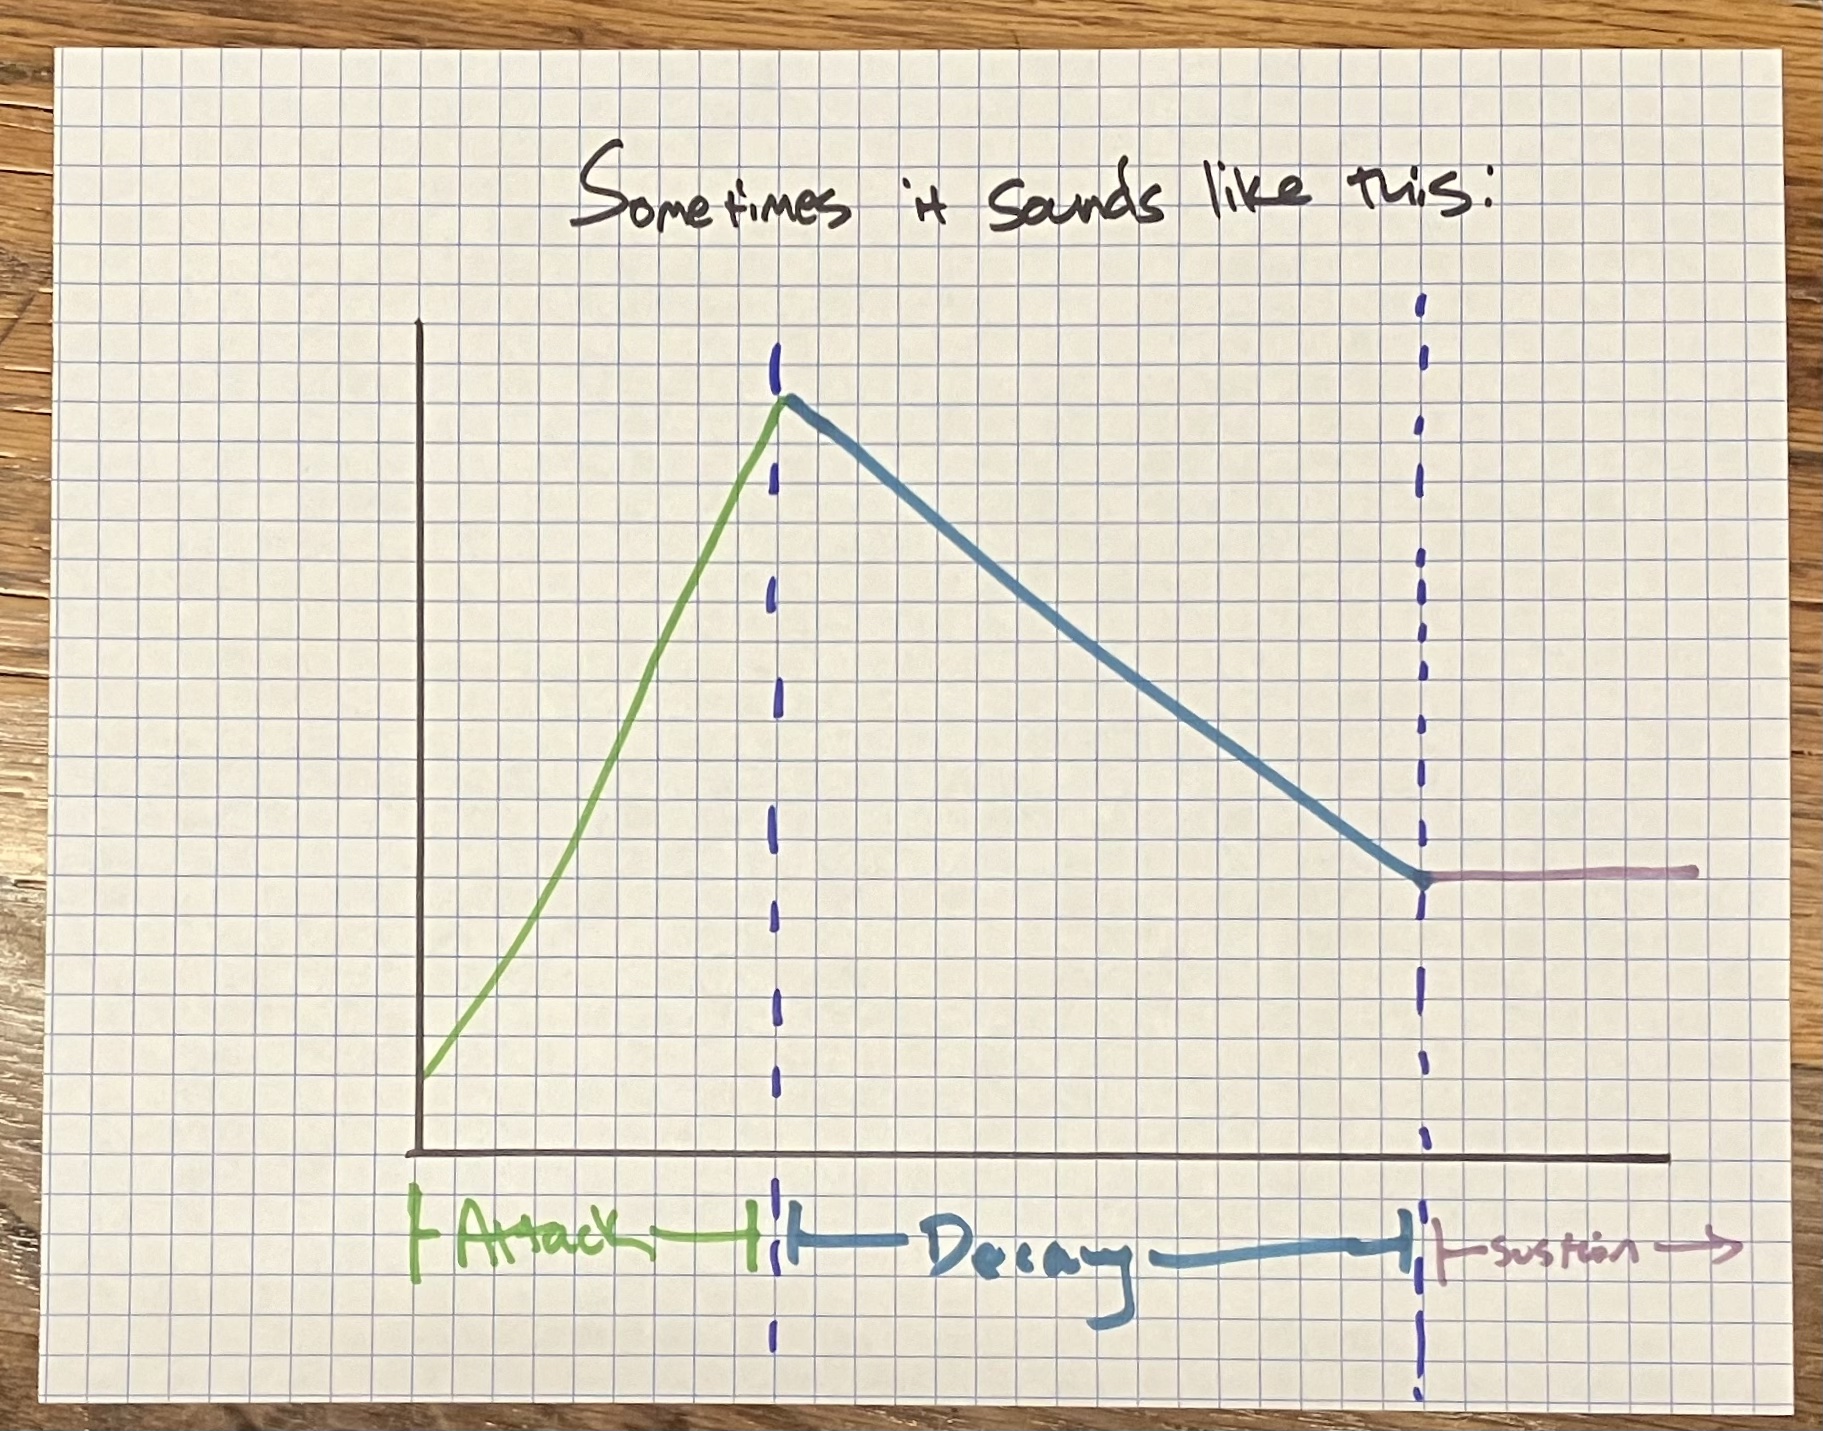 Sometimes it sounds like this:
Attack Decay sustain